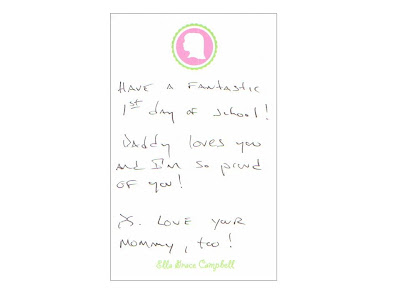 HAVE A FANTASTIC
1st day of school!
Daddy loves you
and I'm so proud
OF you!
LOVE YOUR
MOMMY, too!
Ella Campbell